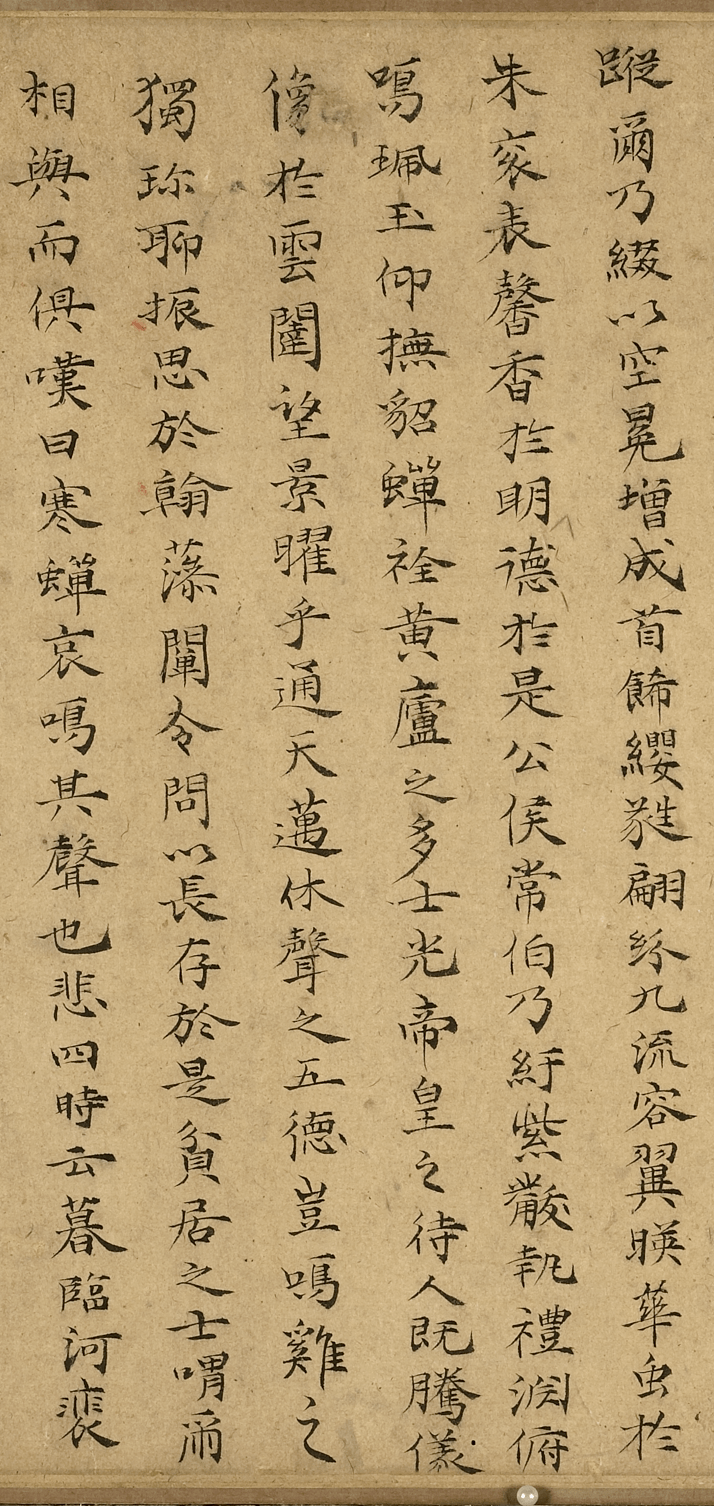 蹤爾乃綴以空冕增成首飾纓蕤翩紛九流容翼暎華虫於
朱袞表馨香於明德於是公侯常伯乃紆紫黻執禮淵俯
鳴珮玉仰撫貂蟬黄廬之多士光帝皇之待人既騰儀
像於雲闥望景曜乎通天邁休聲之五德豈鳴雞之
獨珎聊振思於翰藻闡令問以長存於是貧居之士喟爾
相與而俱嘆曰寒蟬哀鳴其聲也悲四時云暮臨河裵